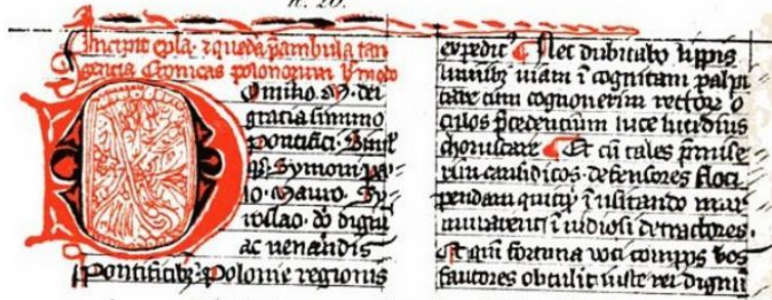 n. 20.
Incipit epla. ⁊ queda p̄ambula tan
gencia Cronicas polonorum
Domino. M. dei
gracia summo
pontifici. Simul
qȝ. Symoni. pa=
lo. Mauro. Sy=
roslao. do dignis
ac uenandis
pontificibȝ Polonie regionis
expedit᾿ Nec dubitabo lippis
luminibȝ uiam ī cognitam palpi
tare cum cognouerim rectorū o
culos p̄cedencium luce lucidius
choruscare Et cū tales p̄mise
rim causidicos. defensores floci
pendam quitqȝ ī usitando mur
murauerit ī uidiosi detractores.
Et quī fortuna uoti compos vos
fautores obtulit iuste rei dignū